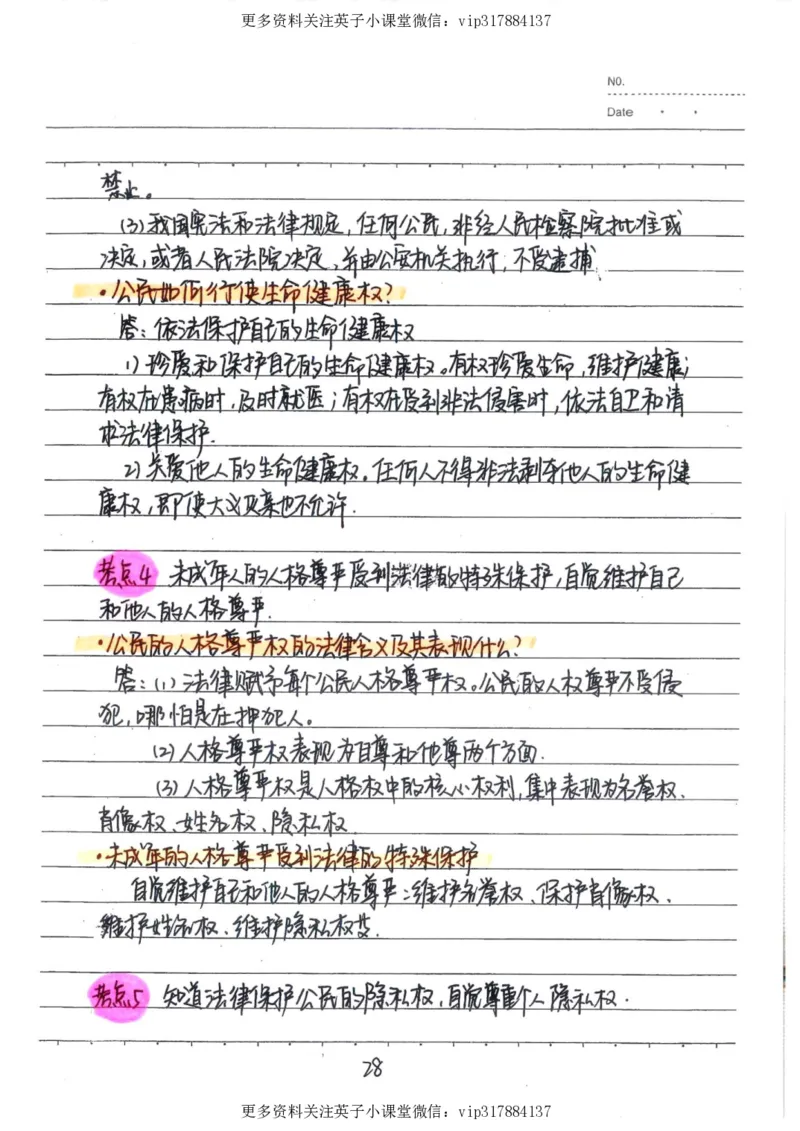 更多资料关注英子小课堂微信：vip317884137
NO.
Date
禁止。
(3)我国宪法和法律规定,任何公民,非经人民检察院批准或
决定,或者人民法院决定,并由公安机关执行,不受逮捕
·公民如何行使生命健康权?
答：依法保护自己的生命健康权
1)珍爱和保护自己的生命健康权。有权珍爱生命,维护健康;
有权在患病时,及时就医;有权在受到非法侵害时,依法自卫和请
求法律保护.
2)关爱他人的生命健康权。任何人不得非法剥夺他人的生命健
康权,即使大义灭亲也不允许.
考点4 未成年人的人格尊严受到法律的特殊保护,自觉维护自己
和他人的人格尊严.
·公民的人格尊严权的法律含义及其表现什么?
答：(1)法律赋予每个公民人格尊严权。公民的人权尊严不受侵
犯,哪怕是在押犯人。
(2)人格尊严权表现为自尊和他尊两个方面.
(3)人格尊严权是人格权中的核心权利,集中表现为名誉权、
肖像权、姓名权、隐私权
·未成年的人格尊严受到法律的特殊保护
自觉维护自己和他人的人格尊严:维护名誉权、保护肖像权、
维护姓名权、维护隐私权.
考点5 知道法律保护公民的隐私权,自觉尊重个人隐私权.
28
更多资料关注英子小课堂微信：vip317884137